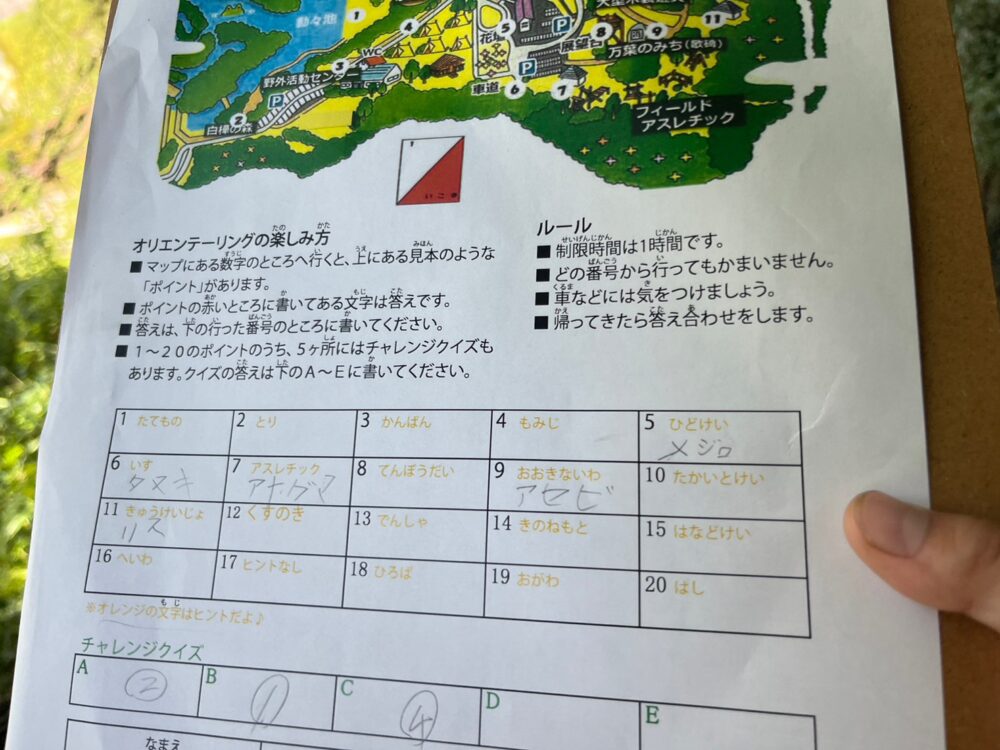 動々池
1
4
5
P
8
9
11
WC
花
展望台
万葉のみち(歌碑)
3
野外活動センター
P
P
車道
6
7
2
白樺の森
フィールド
アスレチック
いこま
オリエンテーリングの楽しみ方
■ マップにある数字のところへ行くと、上にある見本のような
「ポイント」があります。
■ ポイントの赤いところに書いてある文字は答えです。
■ 答えは、下の行った番号のところに書いてください。
■ 1~20のポイントのうち、5ヶ所にはチャレンジクイズも
あります。クイズの答えは下のA~Eに書いてください。
ルール
■ 制限時間は1時間です。
■ どの番号から行ってもかまいません。
■ 車などには気をつけましょう。
■ 帰ってきたら答え合わせをします。
1 たてもの
2 とり
3 かんばん
4 もみじ
5 ひどけい
メジロ
6 いす
タヌキ
7 アスレチック
アナグマ
8 てんぼうだい
9 おおきないわ
アセビ
10 たかいとけい
11 きゅうけいじょ
リス
12 くすのき
13 でんしゃ
14 きのねもと
15 はなどけい
16 へいわ
17 ヒントなし
18 ひろば
19 おがわ
20 はし
※オレンジの文字はヒントだよ♪
チャレンジクイズ
A ②
B ①
C ④
D
E
なまえ